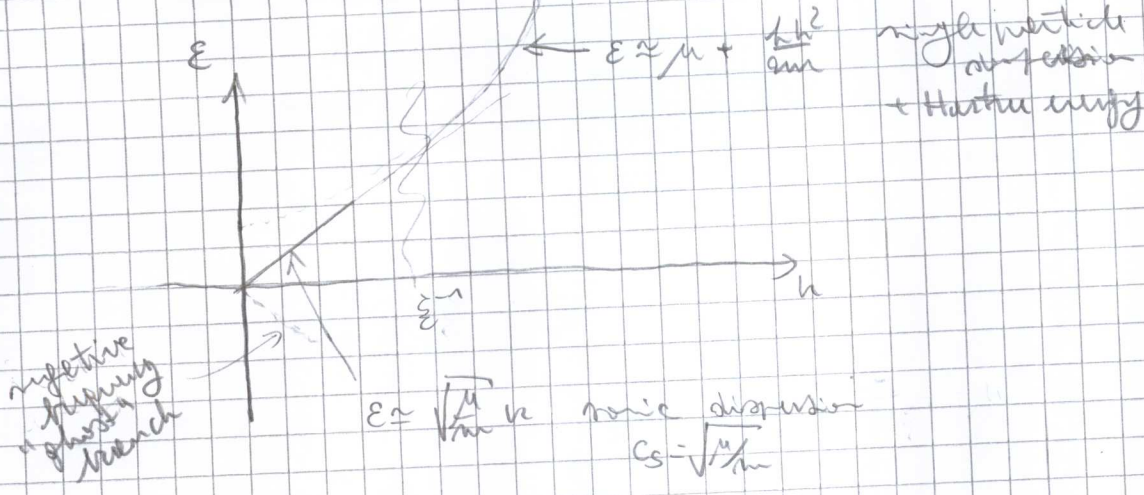 ε
ε ≃ μ + ħk²/2m
single particle
dispersion
+ Hartree energy
k
ξ⁻¹
negative
frequency
"ghost"
branch
ε ≃ √(μ/m) k sonic dispersion
c_s = √(μ/m)